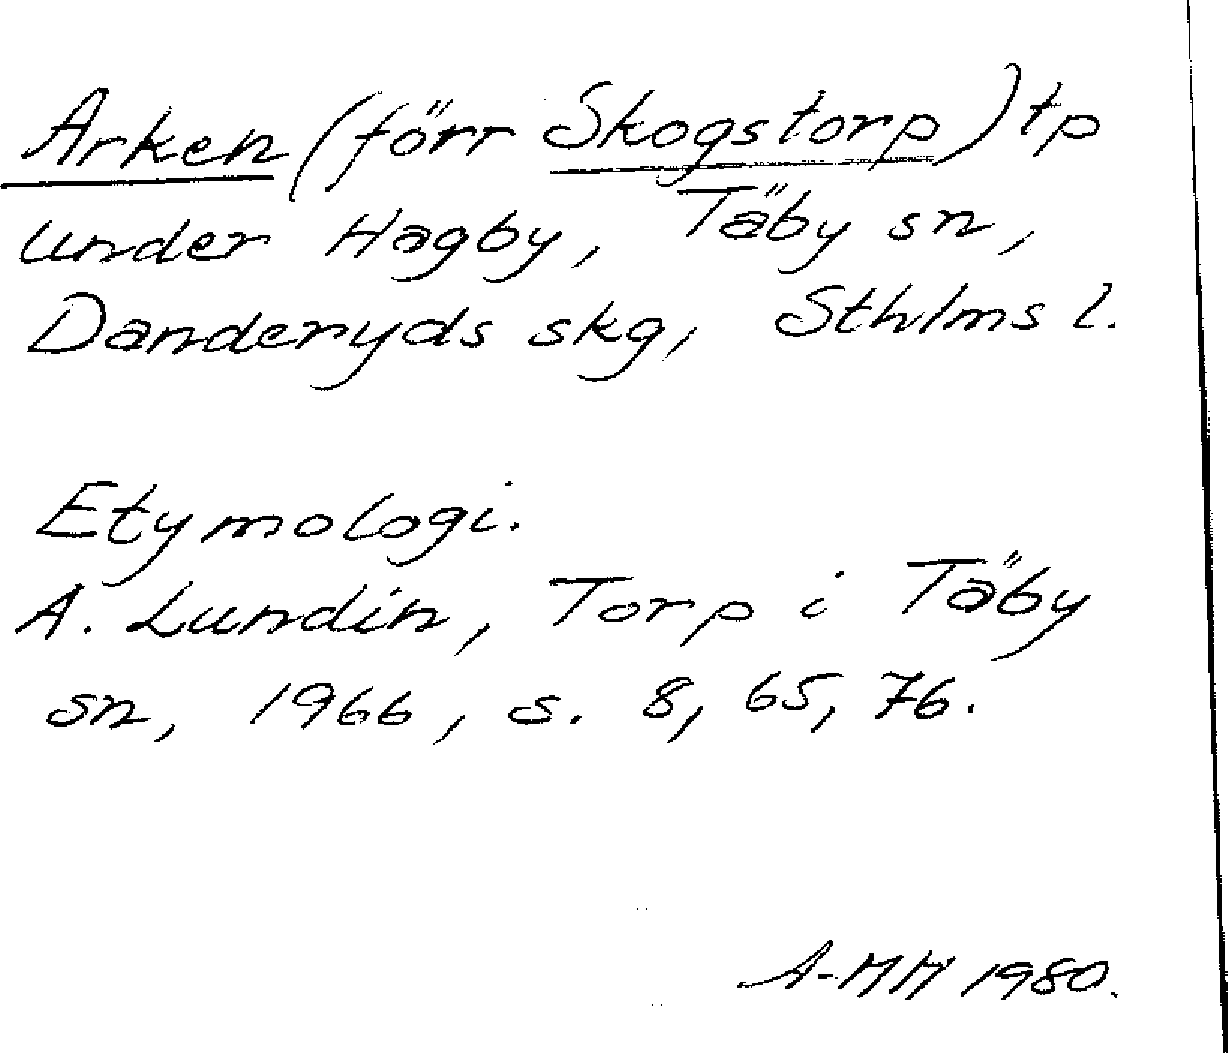 Arken (förr Skogstorp) tp
under Hagby, Täby sn,
Danderyds skg, Sthlms l.
Etymologi.
A. Lundin, Torp i Täby
sn, 1966, s. 8, 65, 76.
A-MH 1980.